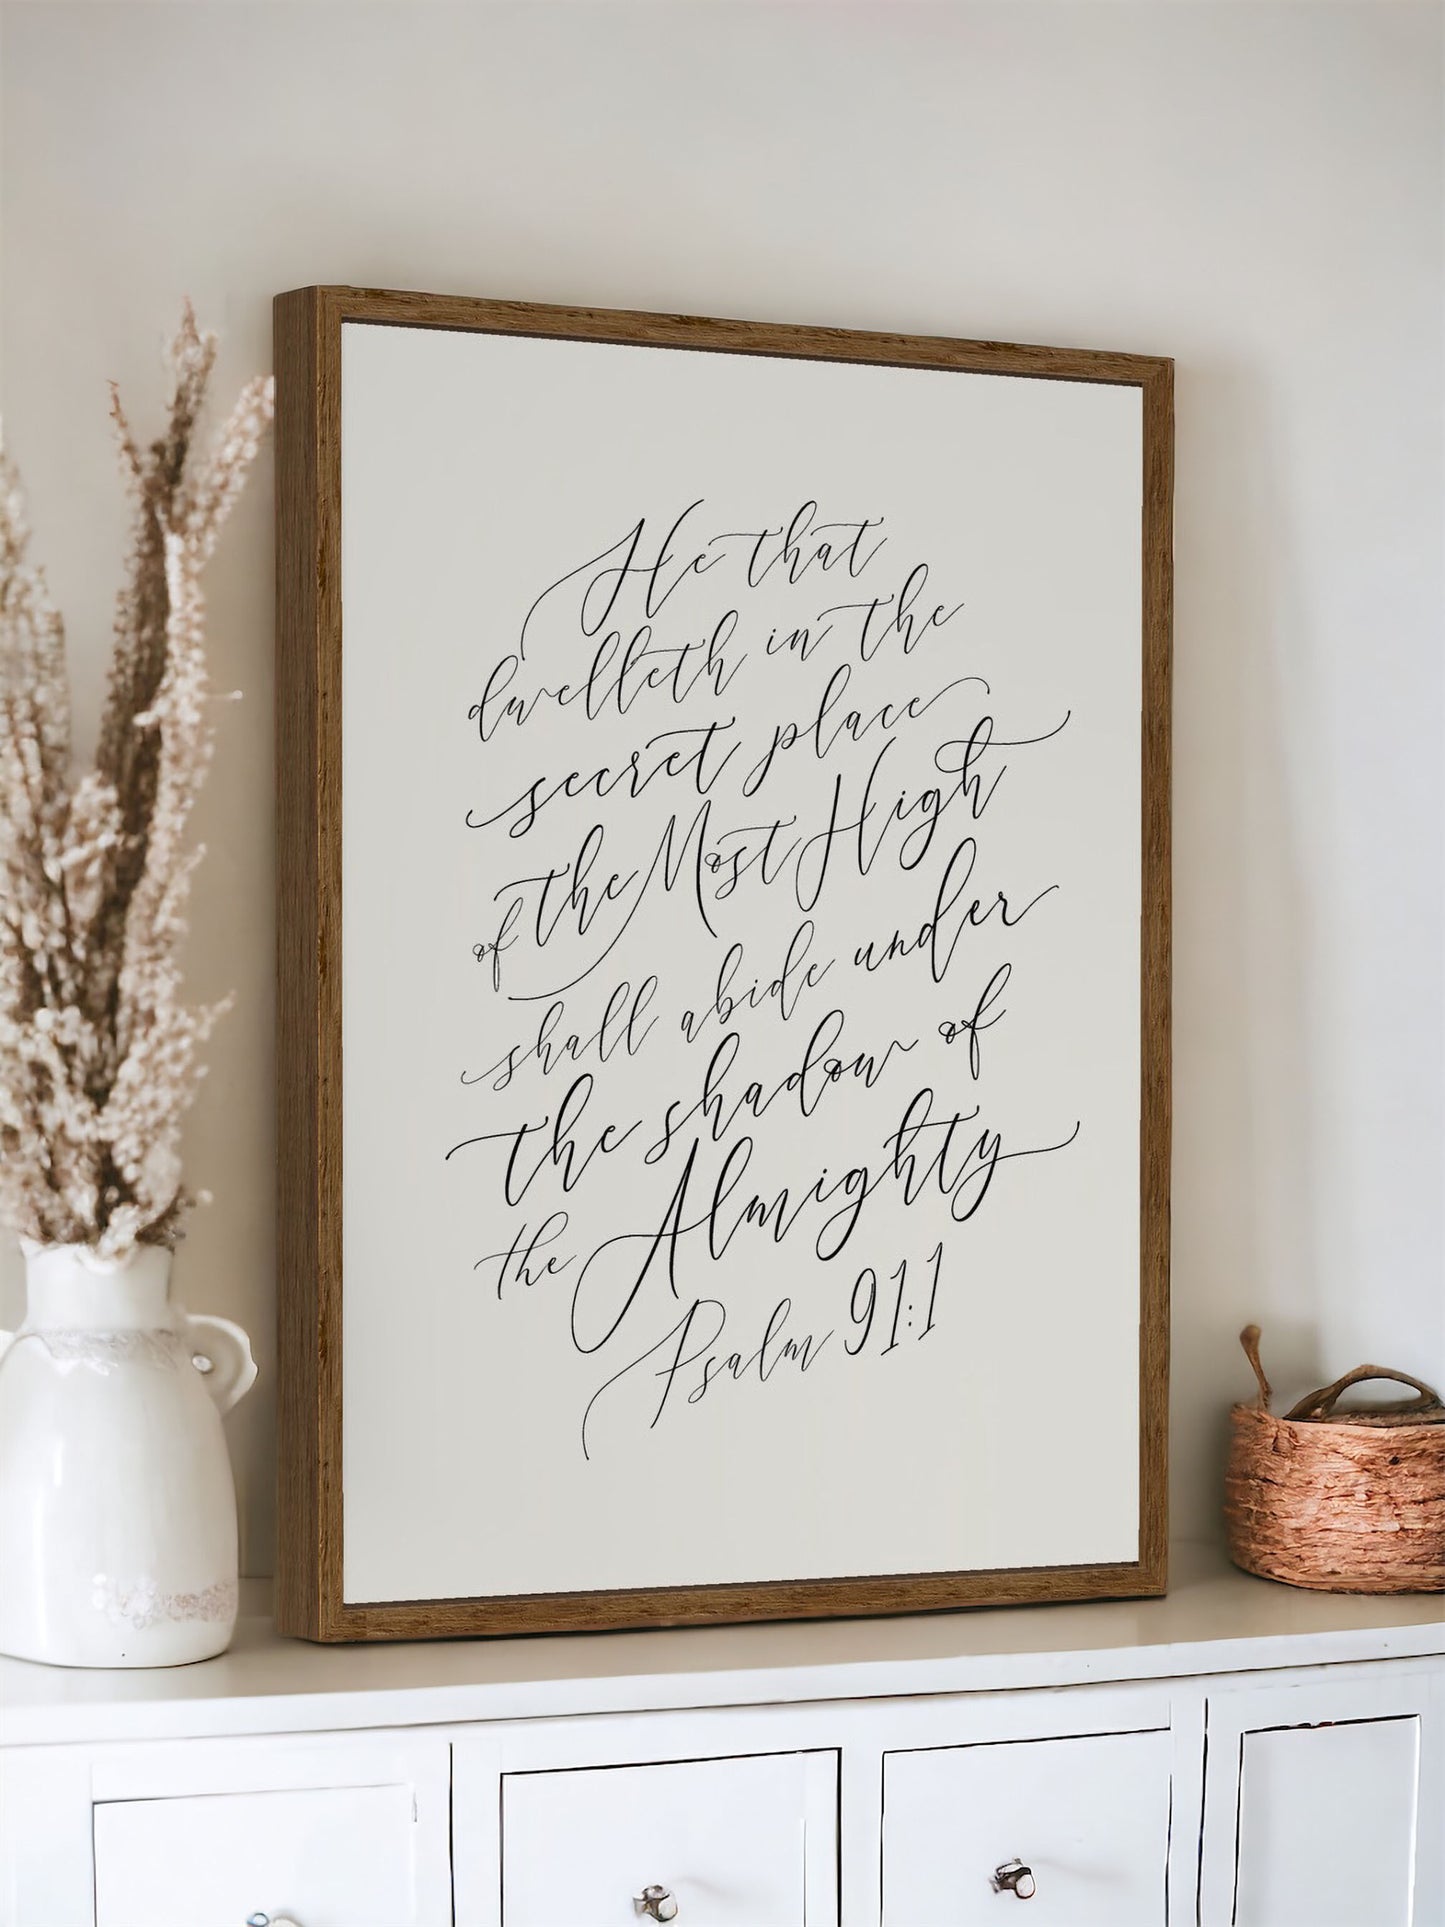 He that
dwelleth in the
secret place
of the Most High
shall abide under
the shadow of
the Almighty
Psalm 91:1